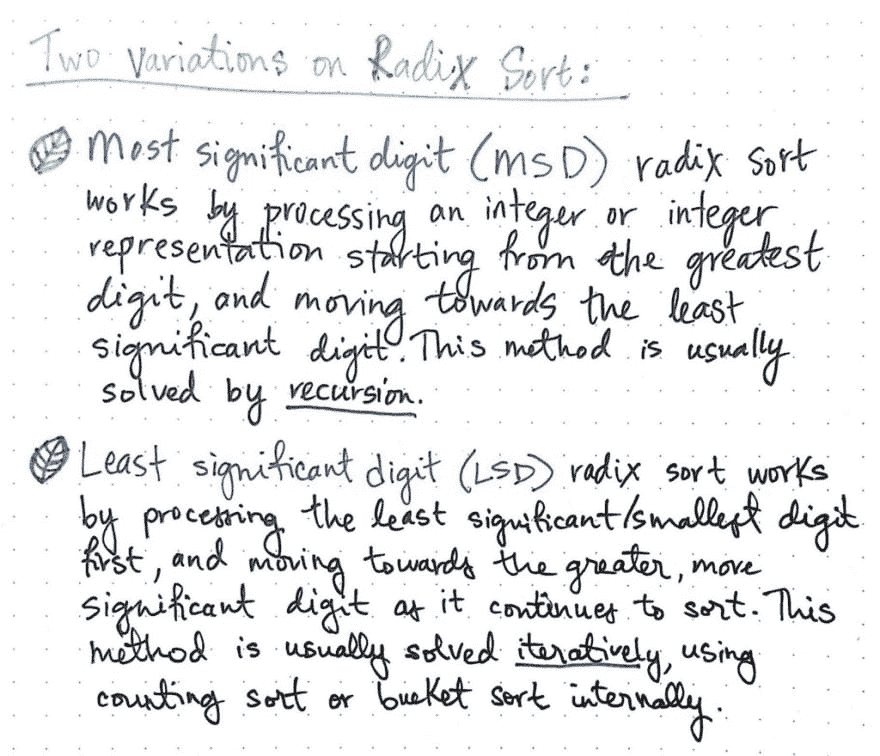 Two Variations on Radix Sort:
Most significant digit (MSD) radix sort
works by processing an integer or integer
representation starting from the greatest
digit, and moving towards the least
significant digit. This method is usually
solved by recursion.
Least significant digit (LSD) radix sort works
by processing the least significant/smallest digit
first, and moving towards the greater, more
significant digit as it continues to sort. This
method is usually solved iteratively, using
counting sort or bucket sort internally.